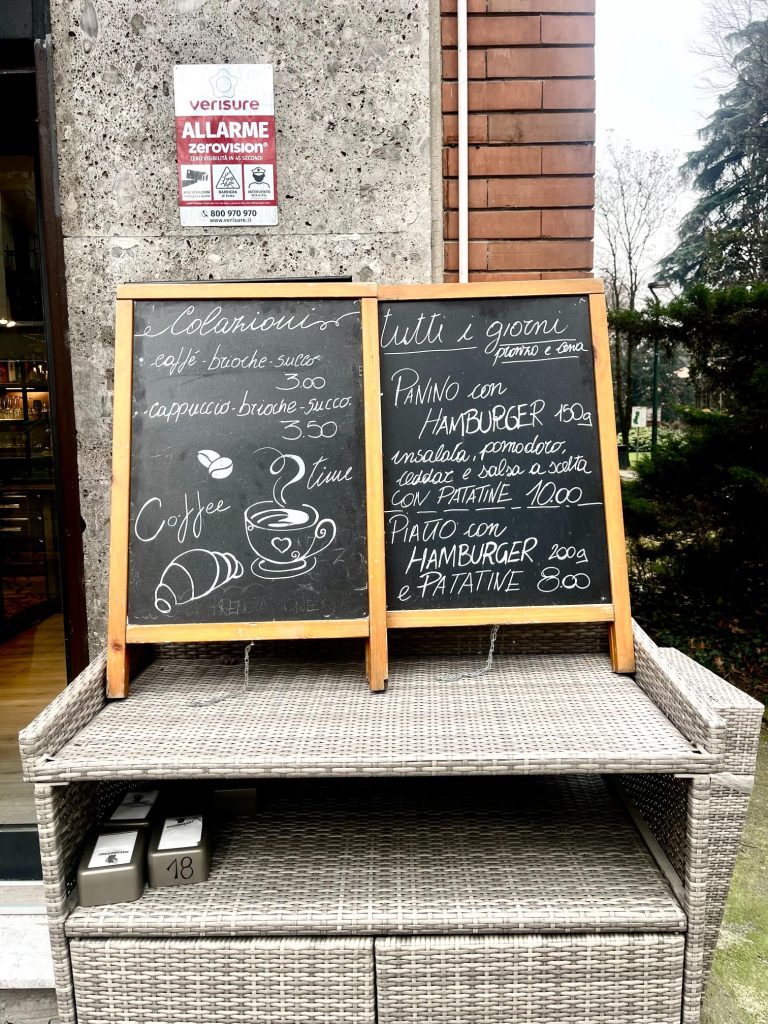 verisure
ALLARME
zerovision®
ZERO VISIBILITÀ IN 45 SECONDI
800 970 970
www.verisure.it
Colazioni
caffé-brioche-succo
3.00
cappuccio-brioche-succo
3.50
time
Coffee
tutti i giorni
pranzo e cena
PANINO con
HAMBURGER 150g
insalata, pomodoro,
ceddar e salsa a scelta
CON PATATINE 10.00
PIATTO con
HAMBURGER 200g
e PATATINE 8.00
18